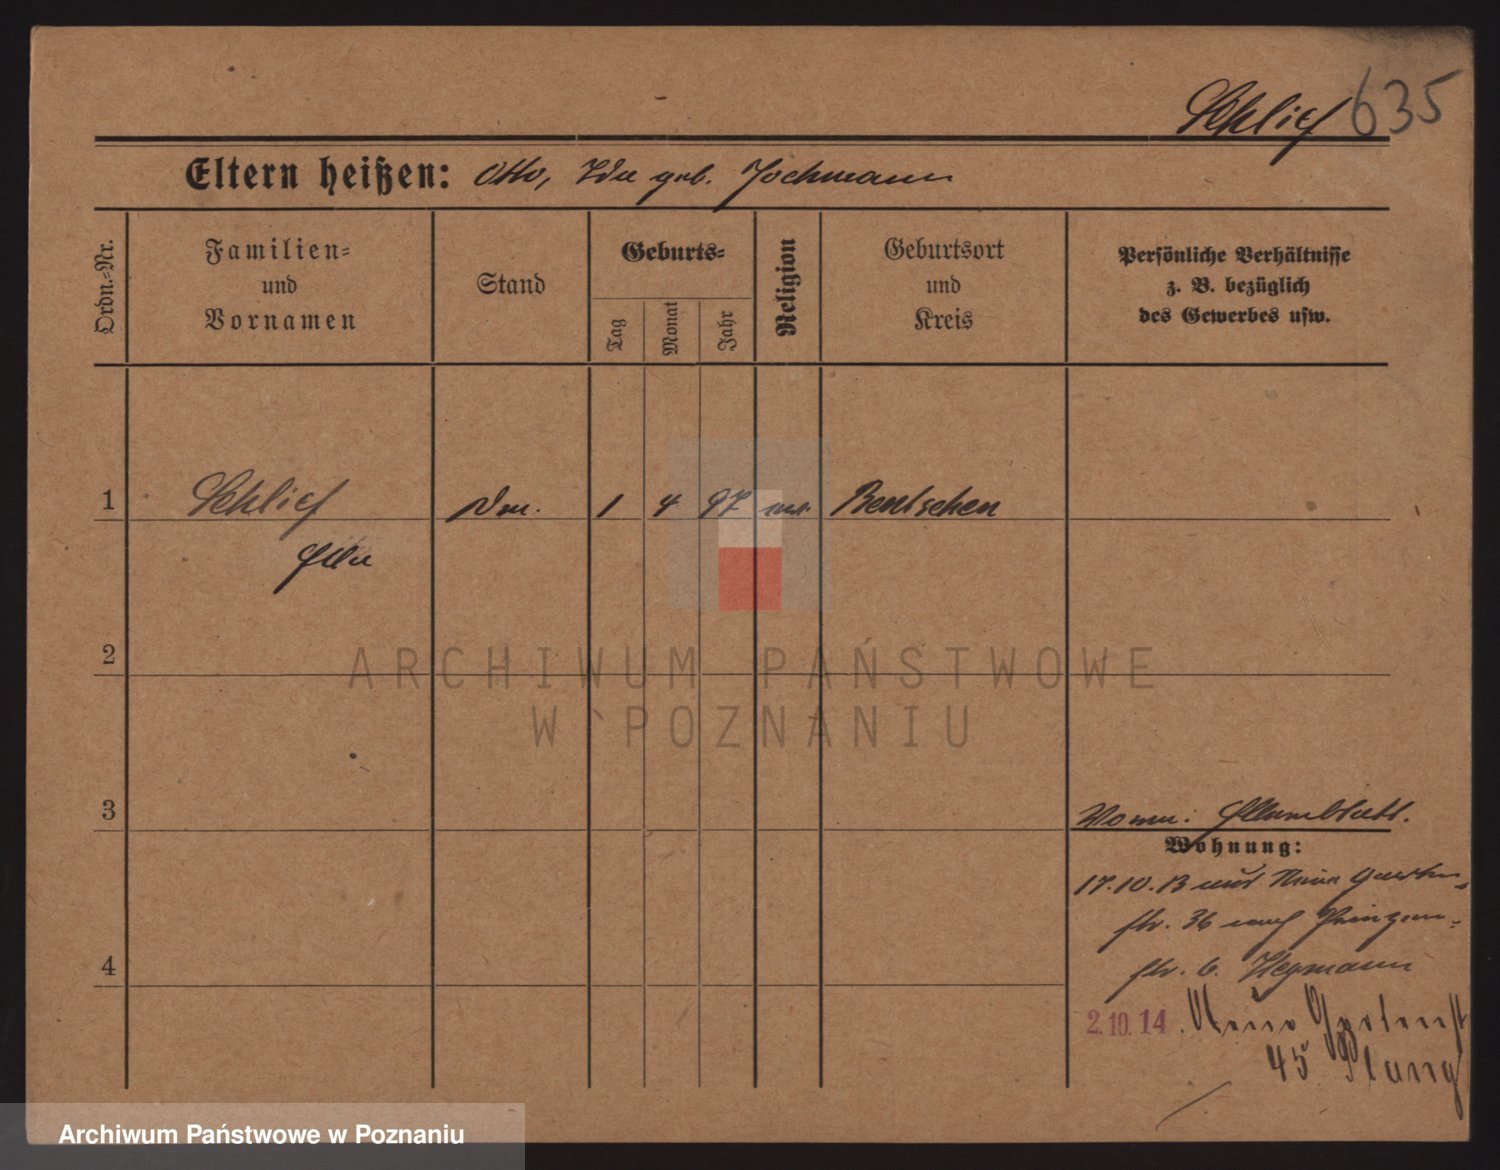 Schlief 635
Eltern heißen: Otto, Ida geb. Jochmann
Ordn.-Nr.
Familien-
und
Vornamen
Stand
Geburts-
Tag
Monat
Jahr
Religion
Geburtsort
und
Kreis
Persönliche Verhältnisse
z. B. bezüglich
des Gewerbes usw.
1 Schlief 1 4 97 Bentschen
Ella
2
ARCHIWUM PAŃSTWOWE
W POZNANIU
3
Wohnung:
17.10.13 Neue Garten
str. 36 Prinzen-
4 str. 6. Heymann
2.10.14. Neue Gartenst
45
Archiwum Państwowe w Poznaniu